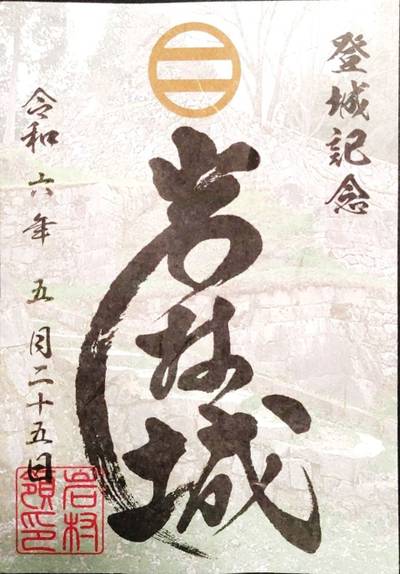 登城記念
岩村城
令和六年 五月二十五日
岩村
領印